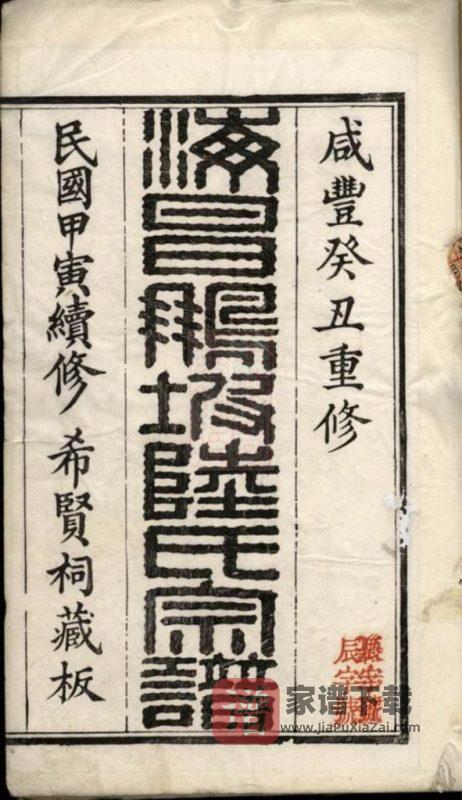 咸豐癸丑重修
海昌鵬坡陸氏宗譜
民國甲寅續修 希賢祠藏板
辰字號
譜
家谱下载
www.JiaPuXiaZai.com